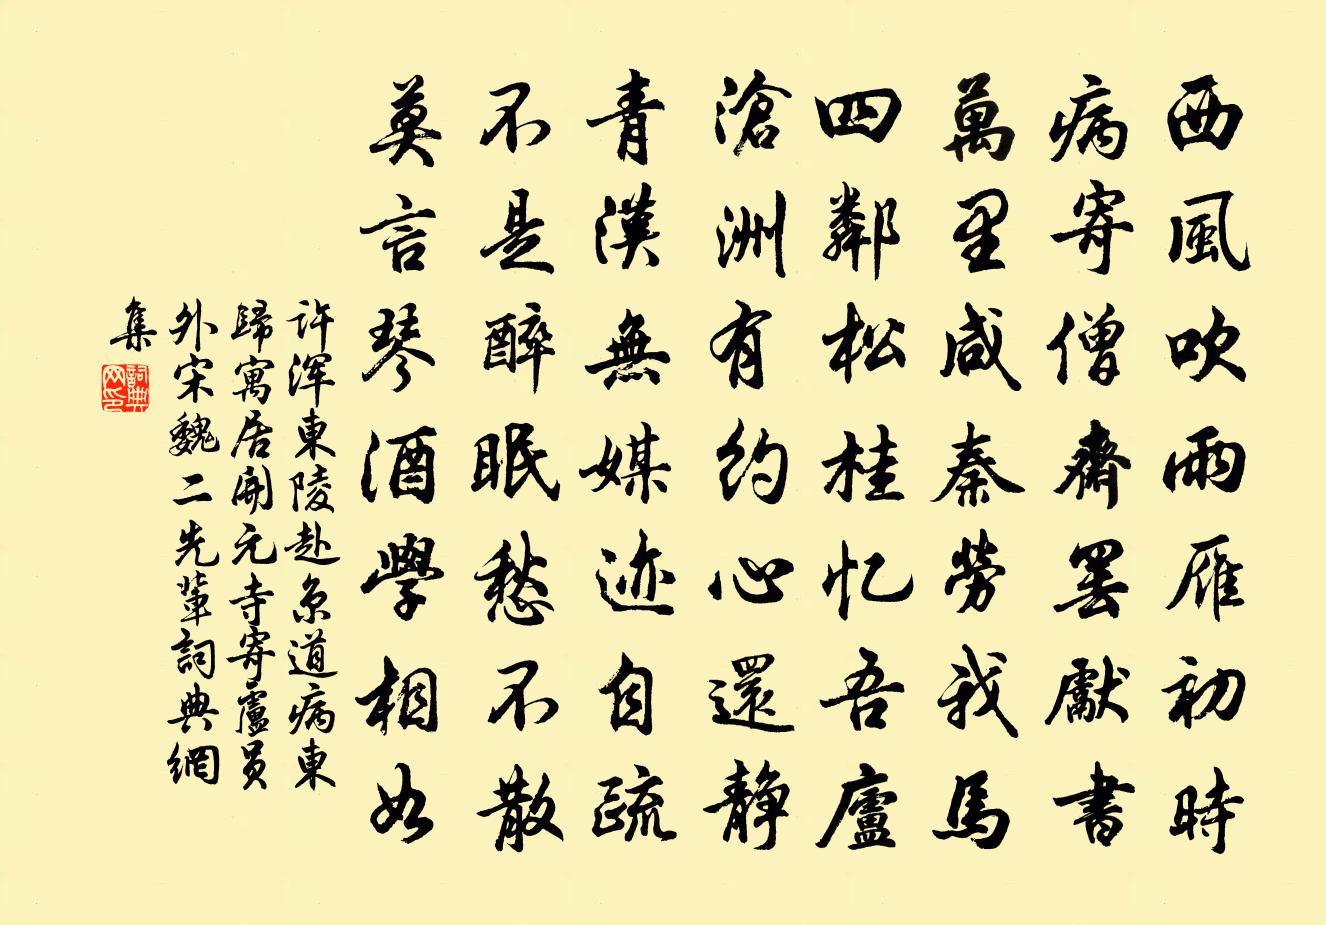 西風吹雨雁初時
病寄僧齋罷獻書
萬里咸秦勞我馬
四鄰松桂忆吾廬
滄洲有約心還静
青漢無媒迹自疏
不是醉眠愁不散
莫言琴酒學相如
許渾東陵赴京道病東
歸寓居開元寺寄盧員
外宋魏二先輩詞典網
集
詞典
网印